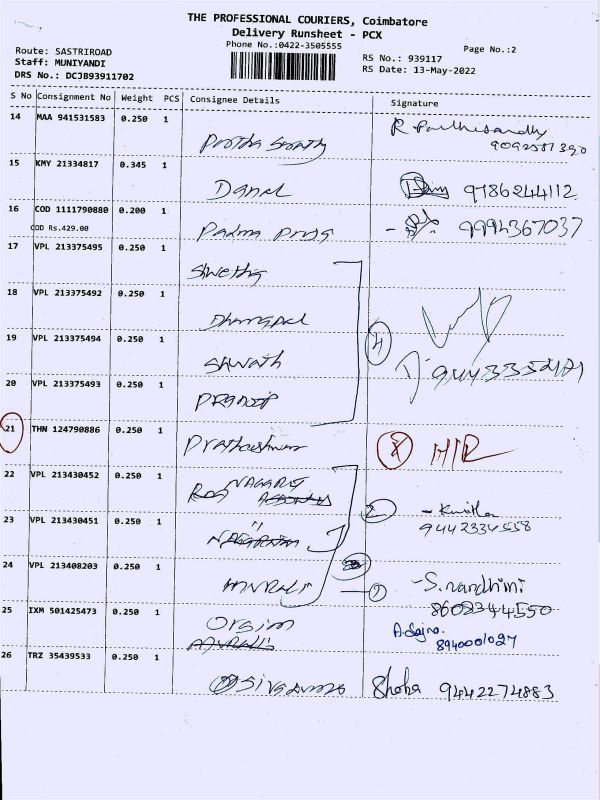 THE PROFESSIONAL COURIERS, Coimbatore
Delivery Runsheet - PCX
Phone No.:0422-3505555
Page No.:2
Route: SASTRIROAD
Staff: MUNIYANDI
DRS No.: DCJB93911702
RS No.: 939117
RS Date: 13-May-2022
S No Consignment No Weight PCS Consignee Details Signature
14 MAA 941531583 0.250 1
15 KMY 21334817 0.345 1 Daniel 9786244112
16 COD 1111790880 0.200 1 Padma Priya 9994367037
COD Rs.429.00
17 VPL 213375495 0.250 1 Shwetha
18 VPL 213375492 0.250 1 Dhanapal
19 VPL 213375494 0.250 1 4
20 VPL 213375493 0.250 1
21 THN 124790886 0.250 1
22 VPL 213430452 0.250 1 2
23 VPL 213430451 0.250 1 9442334558
24 VPL 213408203 0.250 1 MURALI - S. nandhini
8608344550
25 IXM 501425473 0.250 1
8940001027
26 TRZ 35439533 0.250 1 Shoba 9442274883